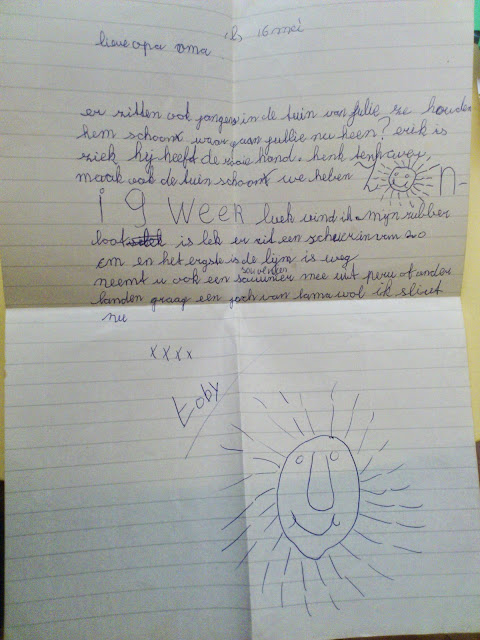 16 mei
lieve opa oma
er zitten ook jongens in de tuin van jullie ze houden
hem schoon waar gaan jullie nu heen? erik is
ziek hij heeft de hond. henk
maak ook de tuin schoon we heben Z N-
i g WEER luek vind ik mijn rubber
boot is lek er zit een scheur in van 20
cm en het ergste is de lijm is weg
souvenier
neemt u ook een mee uit peru of ander
landen graag een van lama wol ik sluit
nu
x x x x
Toby